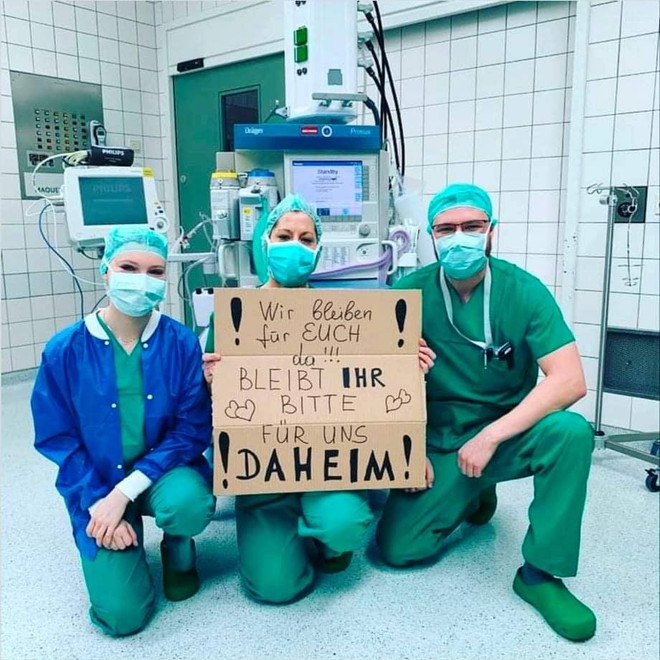 Dräger
Primus
Standby
PHILIPS
PHILIPS
MAQUET
! Wir bleiben !
für EUCH
da!!!
BLEIBT IHR
BITTE
FÜR UNS
! DAHEIM !